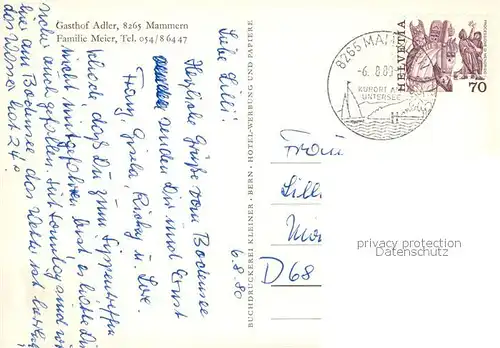 Gasthof Adler, 8265 Mammern
Familie Meier, Tel. 054/8 64 47
6.8.80
Liebe Lilli!
Herzliche Grüße vom Bodensee
senden Dir und Ernst
Franz, Gisela, Ricky u.
Schade, dass Du zum
nicht mitgefahren bist, es hätte Dir
sicher auch gefallen. Seit Sonntag sind wir
hier am Bodensee das Wetter ist
das Wasser hat 24°.
BUCHDRUCKEREI KLEINER · BERN · HOTEL-WERBUNG UND PAPIERE
8265 MAM
-6. 8.80
KURORT A
UNTERSEE
HELVETIA
70
Frau
Lilli
D 68
privacy protection
Datenschutz